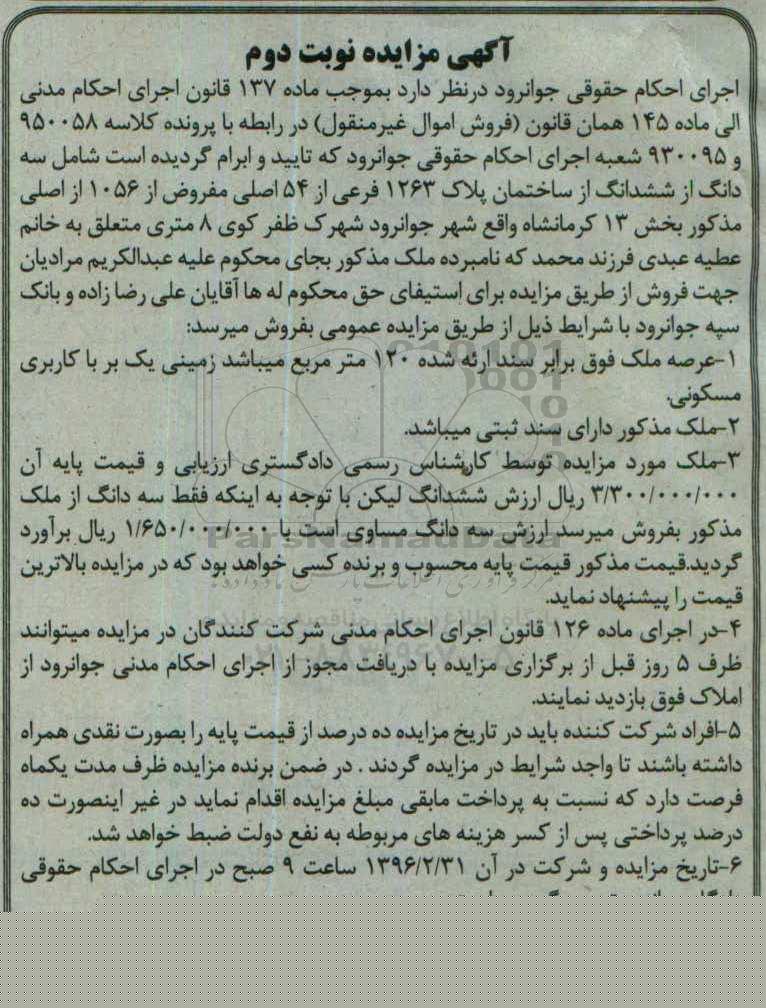 آگهی مزایده نوبت دوم
اجرای احکام حقوقی جوانرود درنظر دارد بموجب ماده ۱۳۷ قانون اجرای احکام مدنی
الی ماده ۱۴۵ همان قانون (فروش اموال غیرمنقول) در رابطه با پرونده کلاسه ۹۵۰۰۵۸
و ۹۳۰۰۹۵ شعبه اجرای احکام حقوقی جوانرود که تایید و ابرام گردیده است شامل سه
دانگ از ششدانگ از ساختمان پلاک ۱۲۶۳ فرعی از ۵۴ اصلی مفروض از ۱۰۵۶ از اصلی
مذکور بخش ۱۳ کرمانشاه واقع شهر جوانرود شهرک ظفر کوی ۸ متری متعلق به خانم
عطیه عبدی فرزند محمد که نامبرده ملک مذکور بجای محکوم علیه عبدالکریم مرادیان
جهت فروش از طریق مزایده برای استیفای حق محکوم له ها آقایان علی رضا زاده و بانک
سپه جوانرود با شرایط ذیل از طریق مزایده عمومی بفروش میرسد:
۱-عرصه ملک فوق برابر سند ارئه شده ۱۲۰ متر مربع میباشد زمینی یک بر با کاربری
مسکونی.
۲-ملک مذکور دارای سند ثبتی میباشد.
۳-ملک مورد مزایده توسط کارشناس رسمی دادگستری ارزیابی و قیمت پایه آن
۳/۳۰۰/۰۰۰/۰۰۰ ریال ارزش ششدانگ لیکن با توجه به اینکه فقط سه دانگ از ملک
مذکور بفروش میرسد ارزش سه دانگ مساوی است با ۱/۶۵۰/۰۰۰/۰۰۰ ریال برآورد
ParsNamadData
گردید.قیمت مذکور قیمت پایه محسوب و برنده کسی خواهد بود که در مزایده بالاترین
قیمت را پیشنهاد نماید.
۴-در اجرای ماده ۱۲۶ قانون اجرای احکام مدنی شرکت کنندگان در مزایده میتوانند
ظرف ۵ روز قبل از برگزاری مزایده با دریافت مجوز از اجرای احکام مدنی جوانرود از
املاک فوق بازدید نمایند.
۵-افراد شرکت کننده باید در تاریخ مزایده ده درصد از قیمت پایه را بصورت نقدی همراه
داشته باشند تا واجد شرایط در مزایده گردند . در ضمن برنده مزایده ظرف مدت یکماه
فرصت دارد که نسبت به پرداخت مابقی مبلغ مزایده اقدام نماید در غیر اینصورت ده
درصد پرداختی پس از کسر هزینه های مربوطه به نفع دولت ضبط خواهد شد.
۶-تاریخ مزایده و شرکت در آن ۱۳۹۶/۲/۳۱ ساعت ۹ صبح در اجرای احکام حقوقی